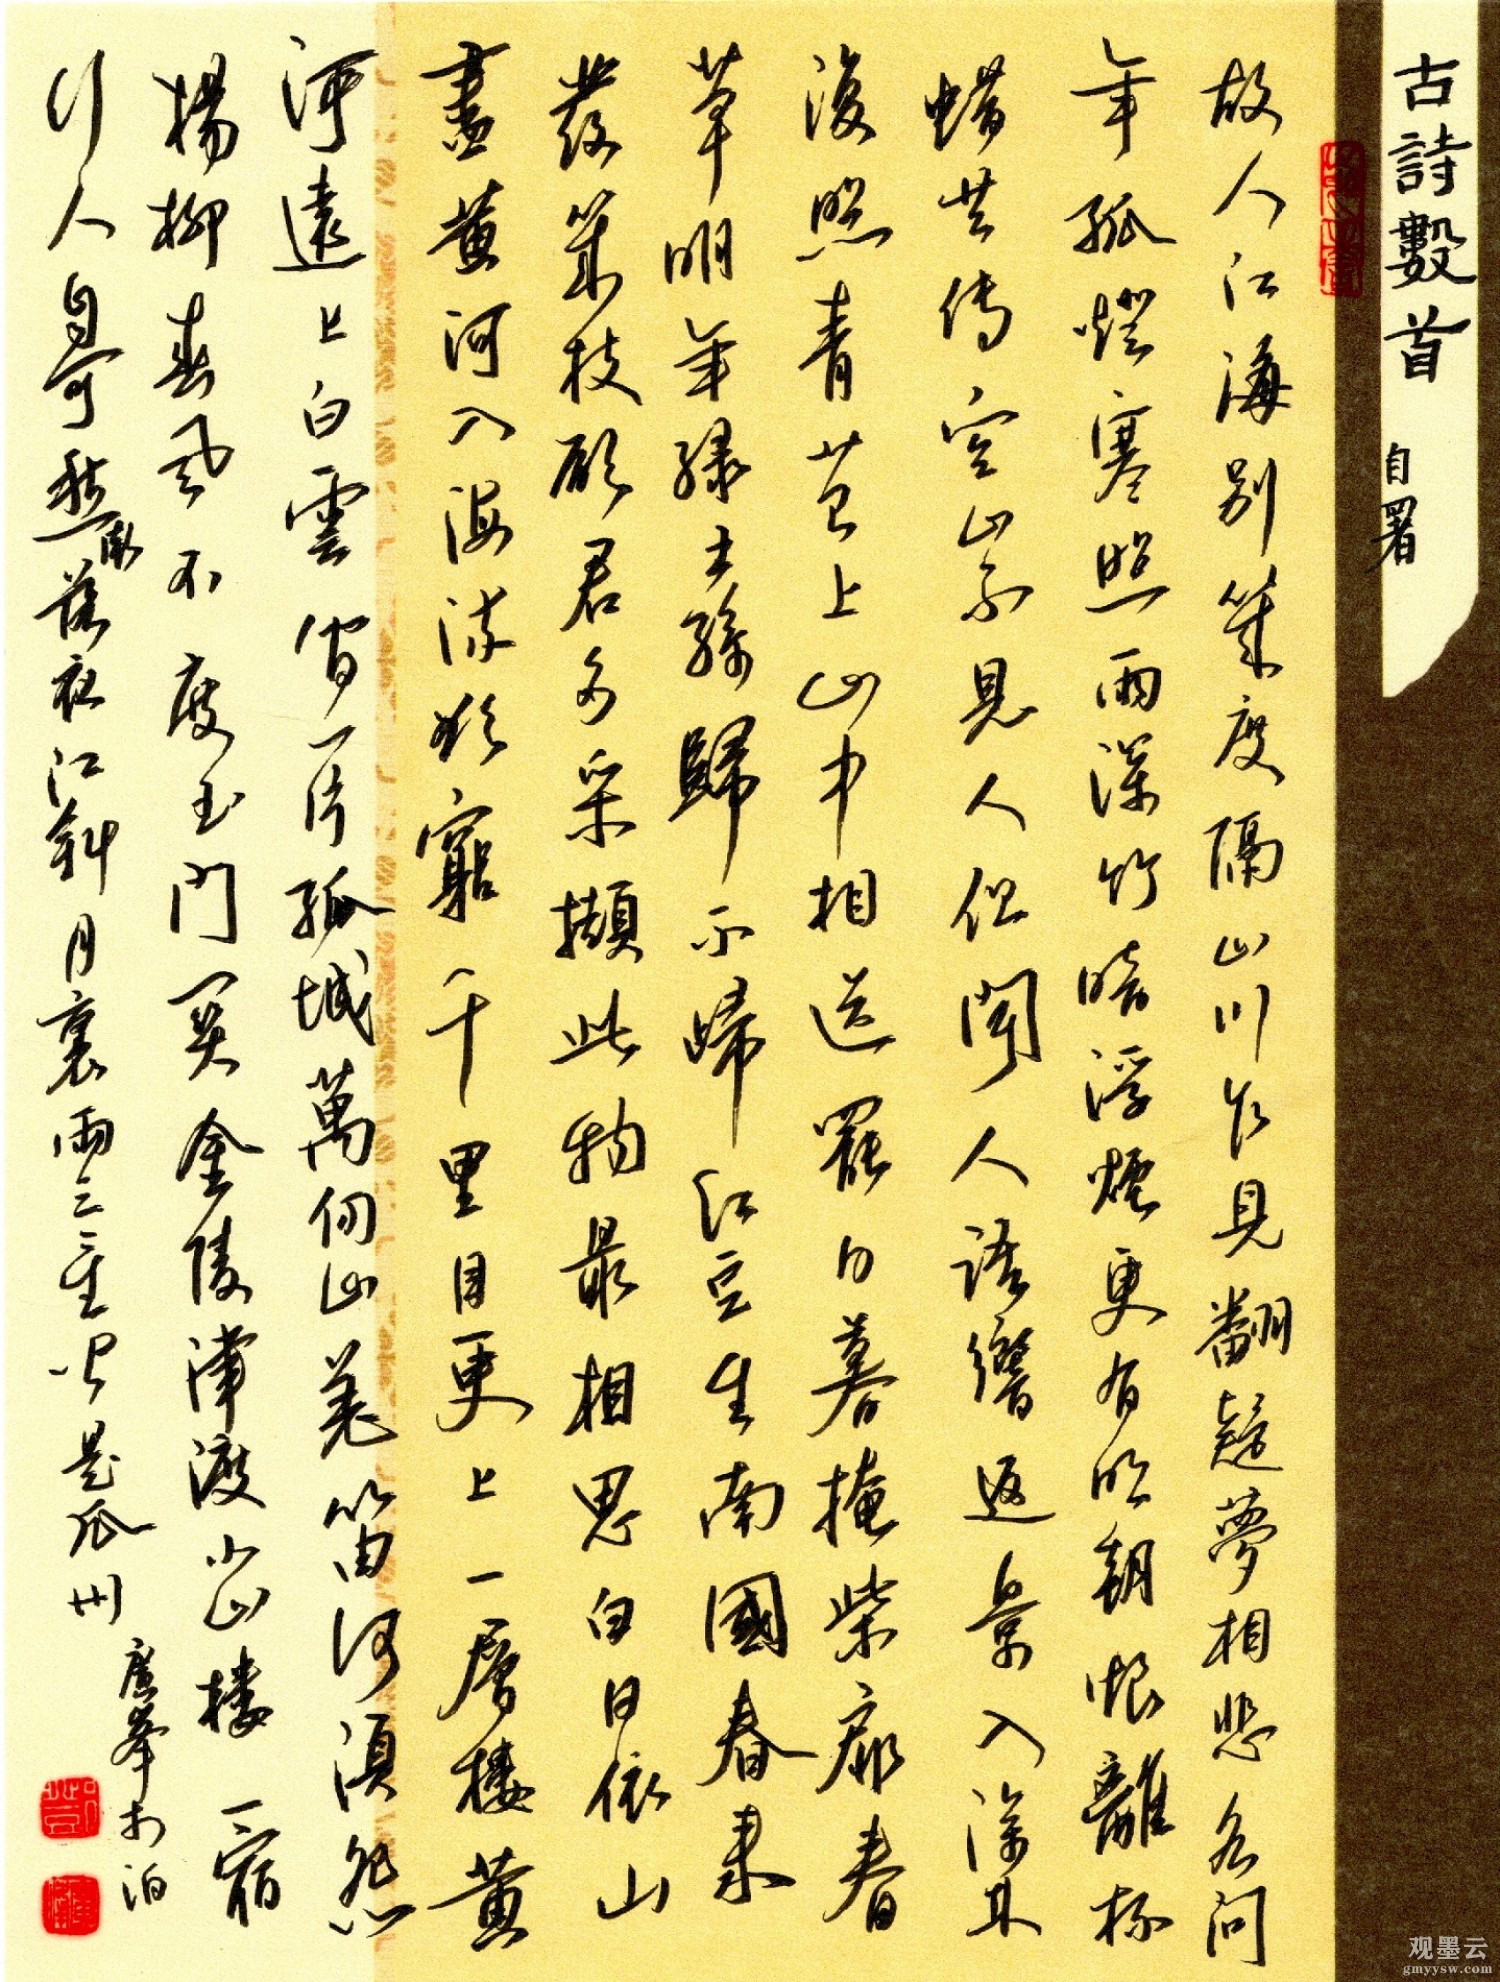 古詩數首
自署
故人江海别幾度隔山川乍見翻疑夢相悲各問
年孤燈寒照雨深竹暗浮煙更有明朝恨離杯
惜共傳空山不見人但聞人語響返景入深林
復照青苔上山中相送罷日暮掩柴扉春
草明年綠王孫歸不歸紅豆生南國春來
發幾枝願君多采擷此物最相思白日依山
盡黄河入海流欲窮千里目更上一層楼黄
河遠上白雲間一片孤城萬仞山羌笛何須怨
楊柳春風不度玉門関金陵津渡小山楼一宿
行人自可愁潮落夜江斜月裏兩三星火是瓜州
观墨云
gmyysw.com